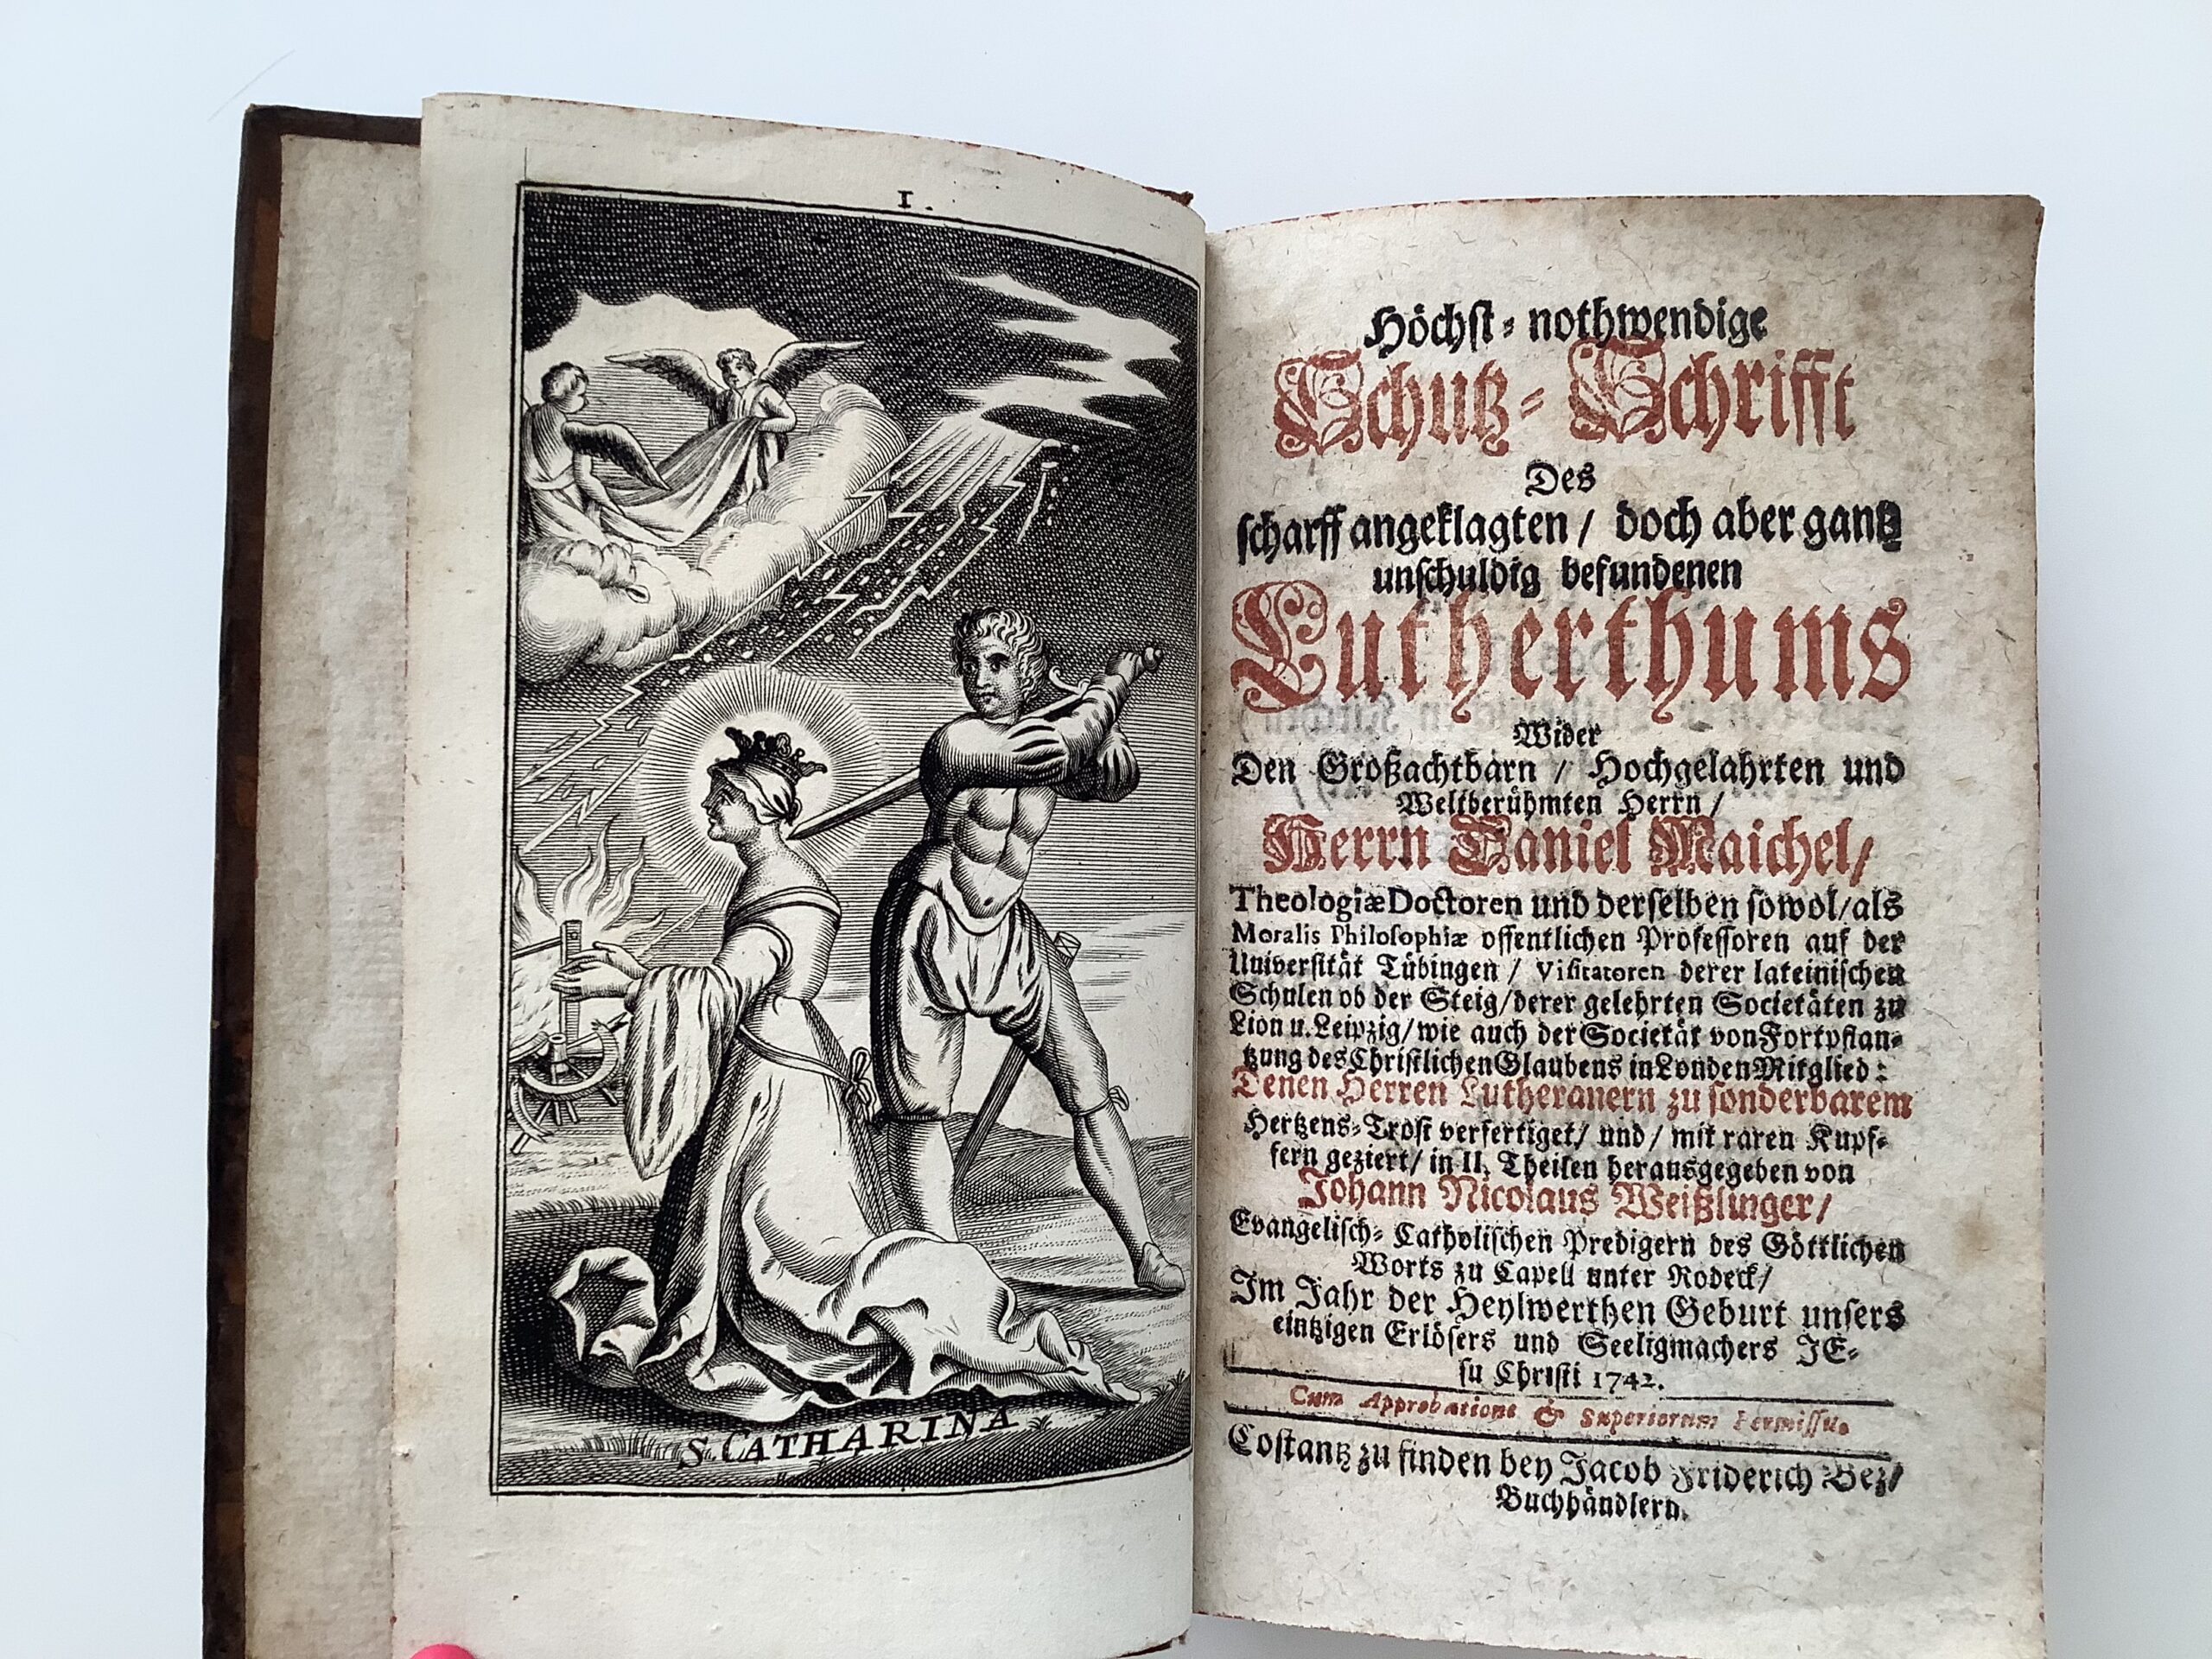 1.
S. CATHARINA
Höchst-nothwendige
Schutz-Schrifft
Des
scharff angeklagten / doch aber gantz
unschuldig befundenen
Lutherthums
Wider
Den Großachtbarn / Hochgelahrten und
Weltberühmten Herrn /
Herrn Daniel Maichel /
Theologiæ Doctoren und derselben sowol / als
Moralis Philosophiæ offentlichen Professoren auf der
Universität Tübingen / Visitatoren derer lateinischen
Schulen ob der Steig / derer gelehrten Societäten zu
Lion u. Leipzig / wie auch der Societät von Fortpflan-
tzung des Christlichen Glaubens in Londen Mitglied:
Denen Herren Lutheranern zu sonderbarem
Hertzens-Trost verfertiget / und / mit raren Kupf-
fern geziert / in II. Theilen herausgegeben von
Johann Nicolaus Weißlinger /
Evangelisch-Catholischen Predigern des Göttlichen
Worts zu Capell unter Rodeck /
Im Jahr der Heylwerthen Geburt unsers
eintzigen Erlösers und Seeligmachers JE-
su Christi 1742.
Cum Approbatione & Superiorum Permissu.
Costantz zu finden bey Jacob Friderich Bez /
Buchhändlern.